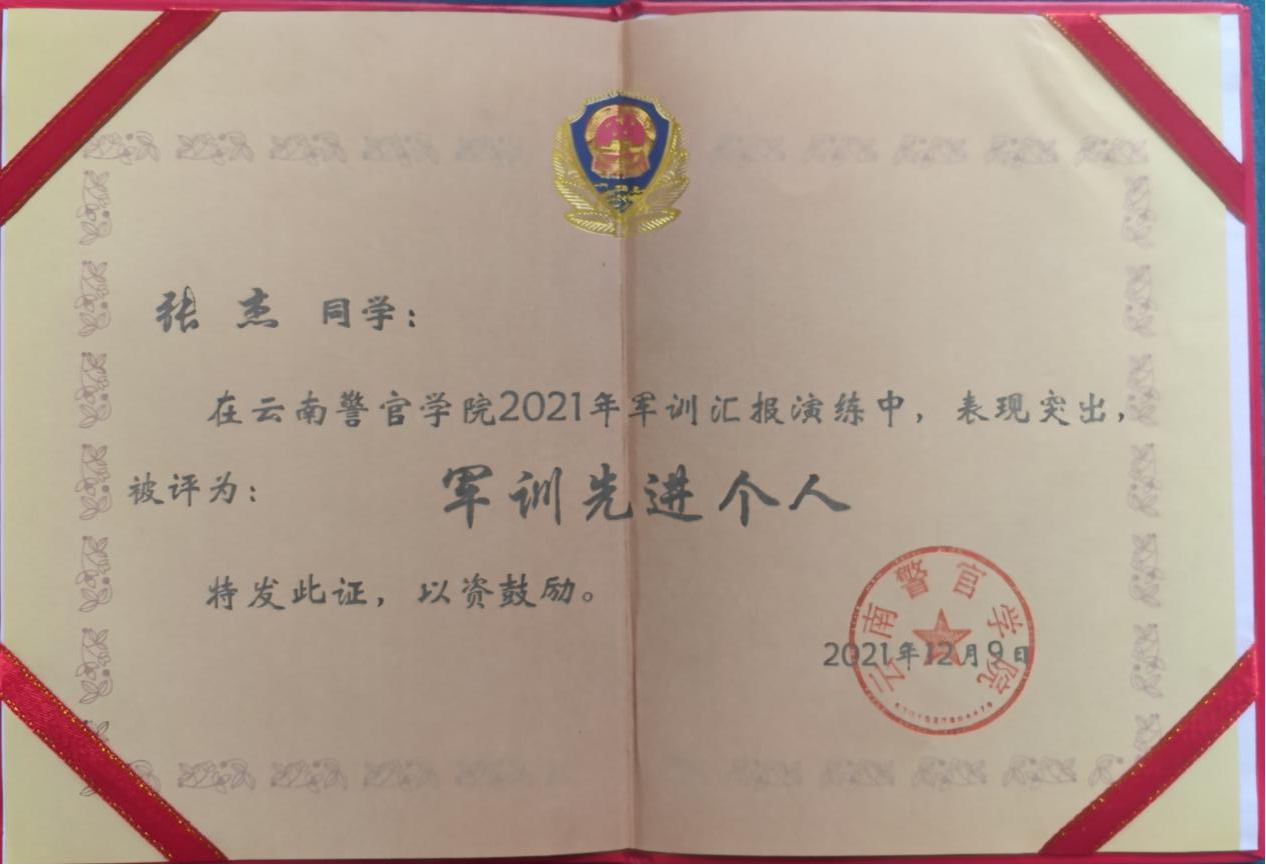 张 杰 同学：
在云南警官学院2021年军训汇报演练中，表现突出，
被评为： 军训先进个人
特发此证，以资鼓励。
2021年12月9日
云南警官学院